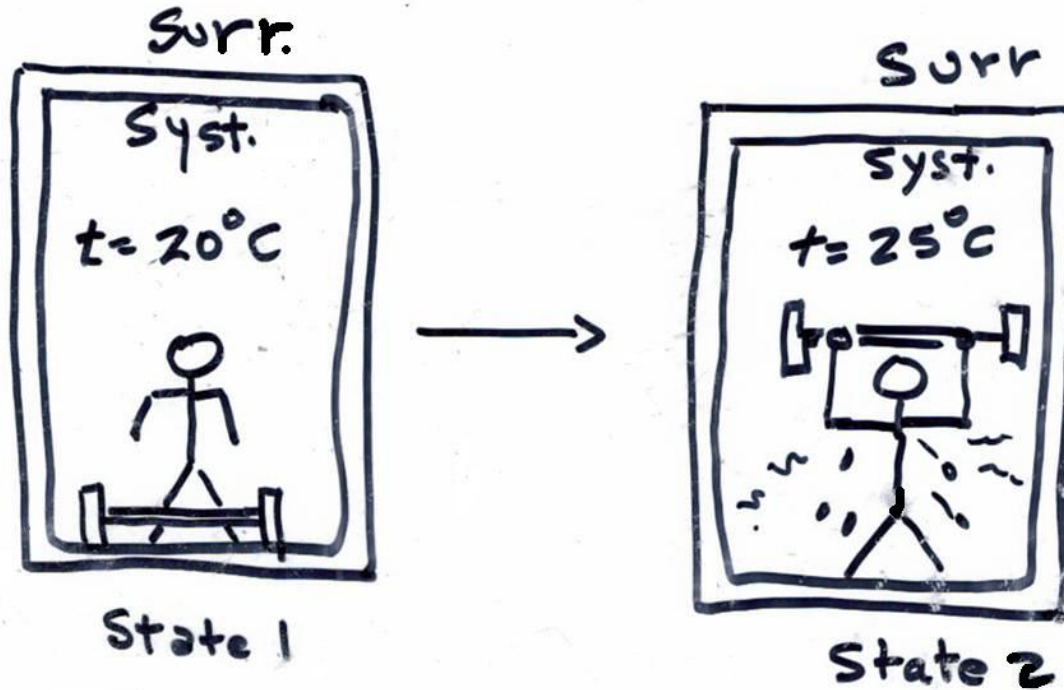 Surr.
Syst.
t= 20°C
State 1
Surr
Syst.
t= 25°C
State 2